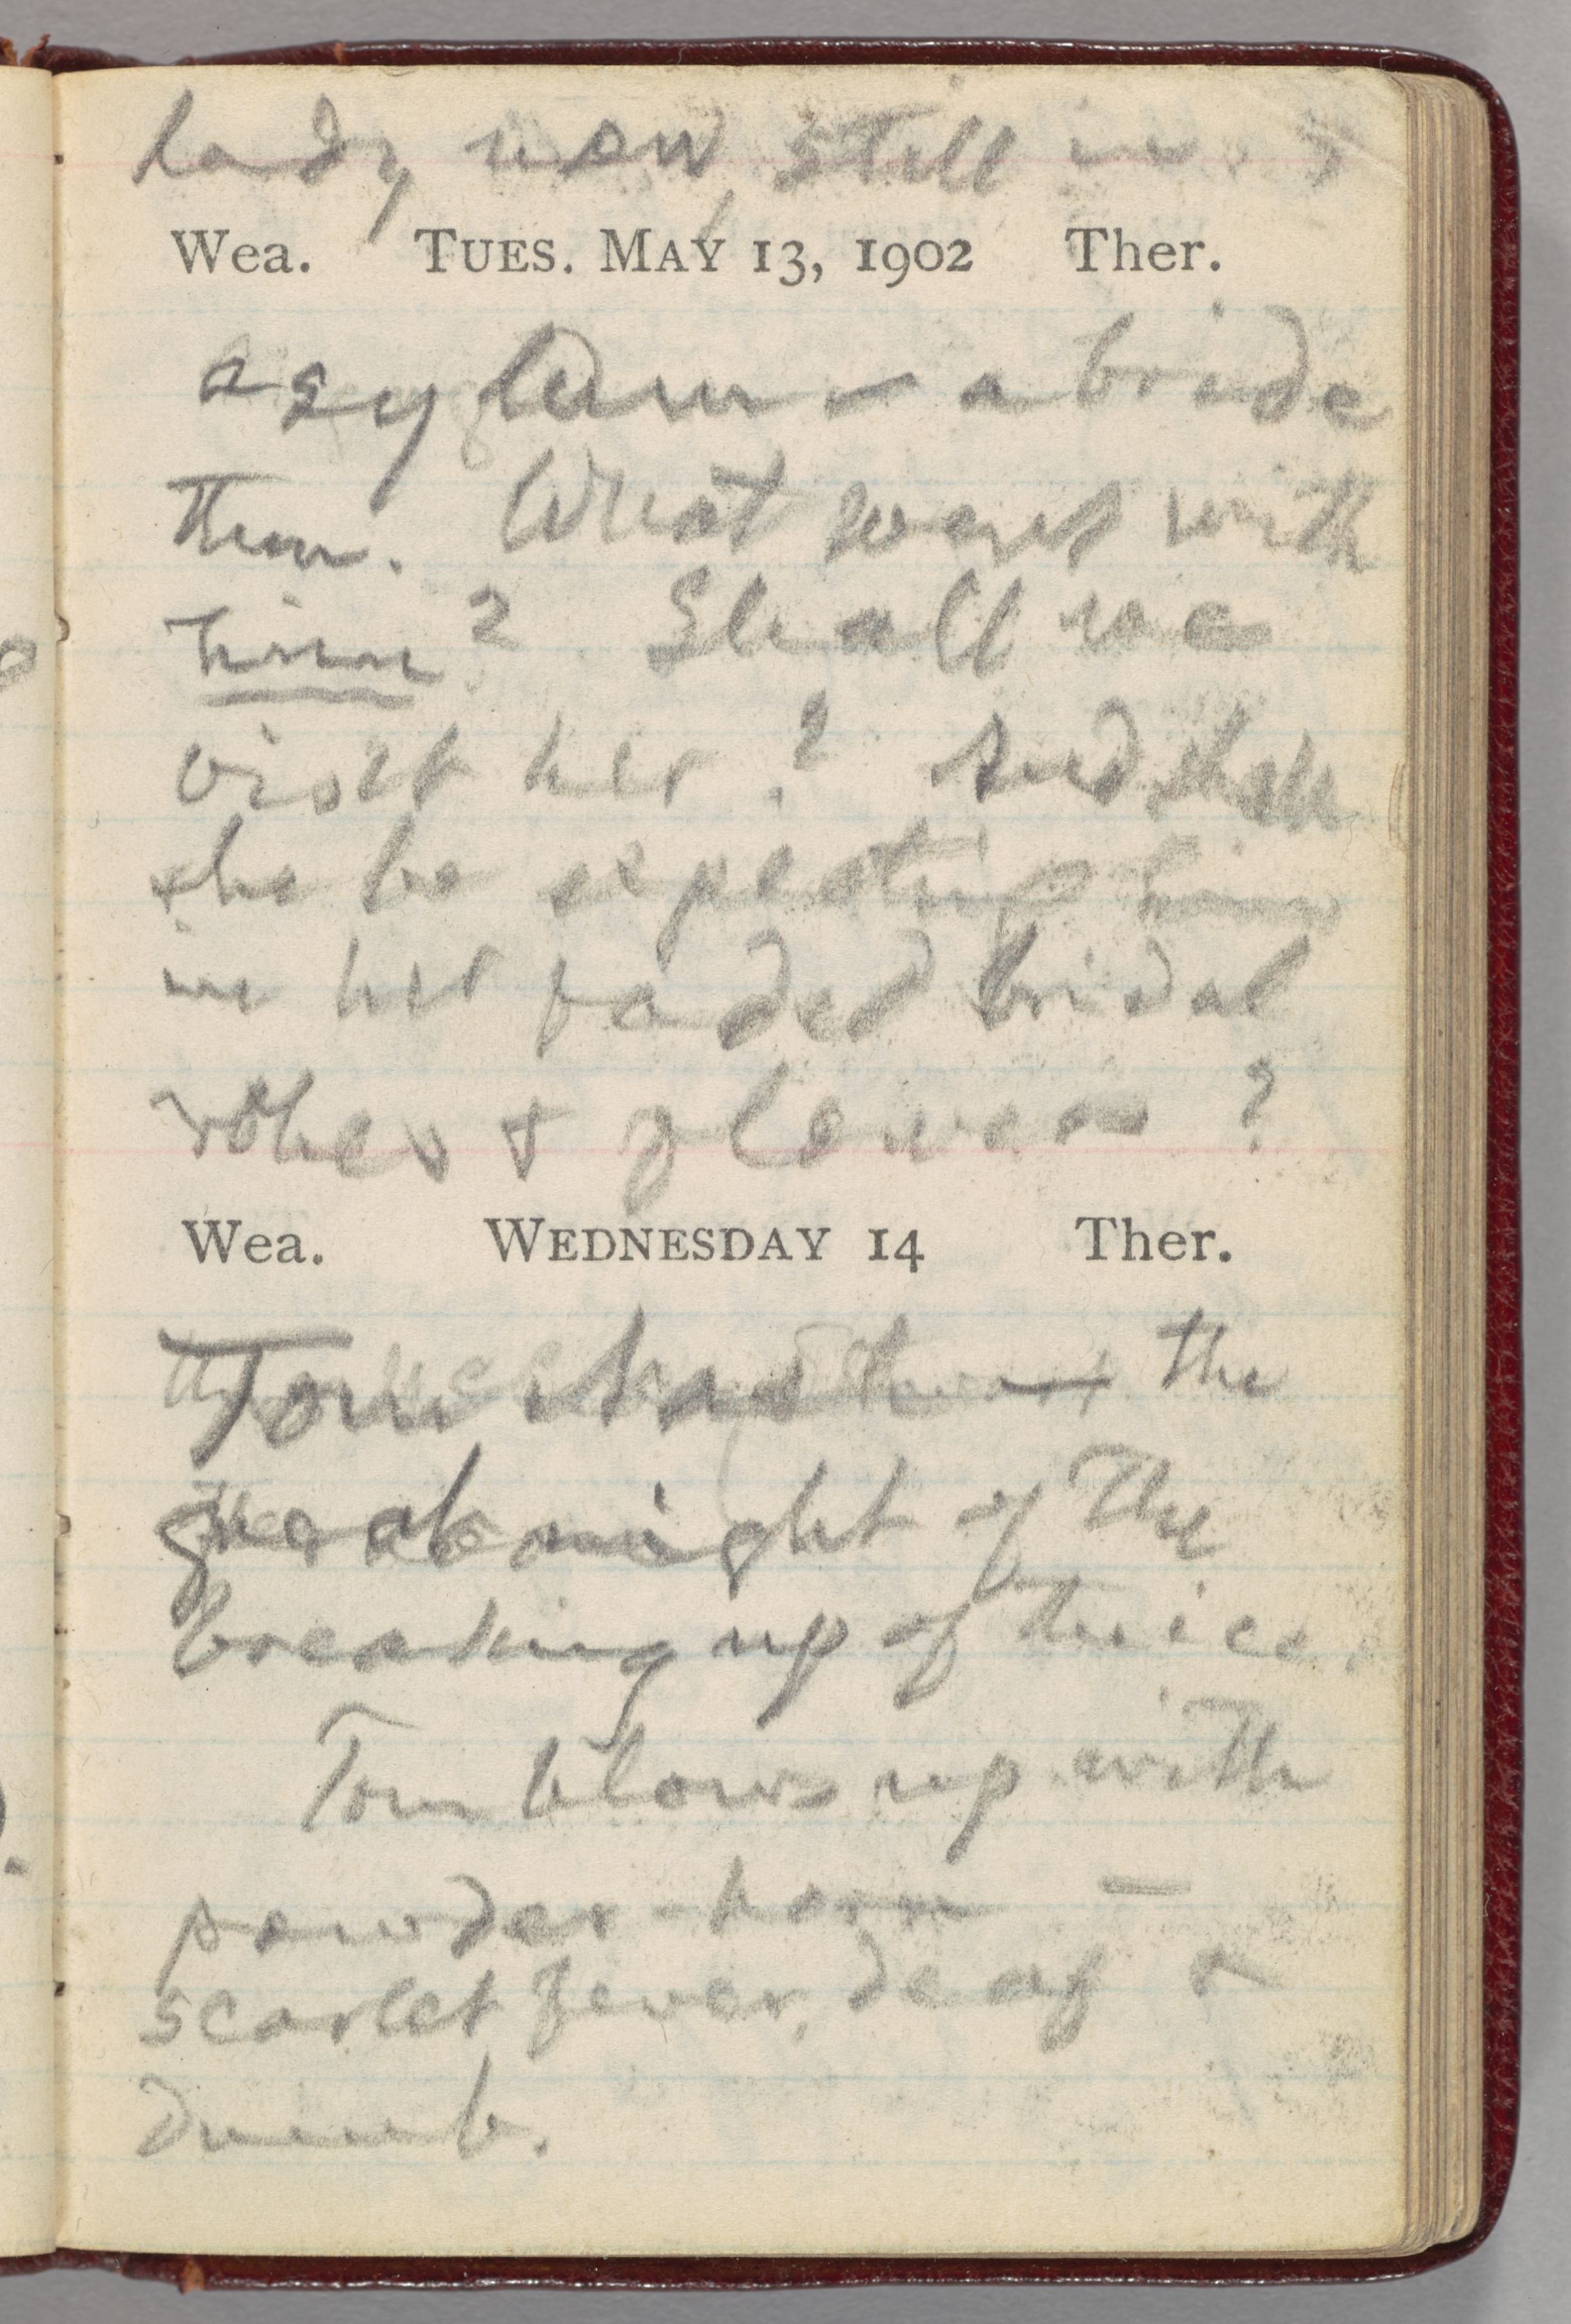 lady now, still in
Wea. TUES. MAY 13, 1902 Ther.
asylum – a bride
then. What went with
him? Shall we
visit her? And shall
she be expecting him
in her faded bridal
robes & flowers?
Wea. WEDNESDAY 14 Ther.
the
night of the
breaking up of the ice.
Tom blows up with
powder-horn –
scarlet fever, deaf &
dumb.